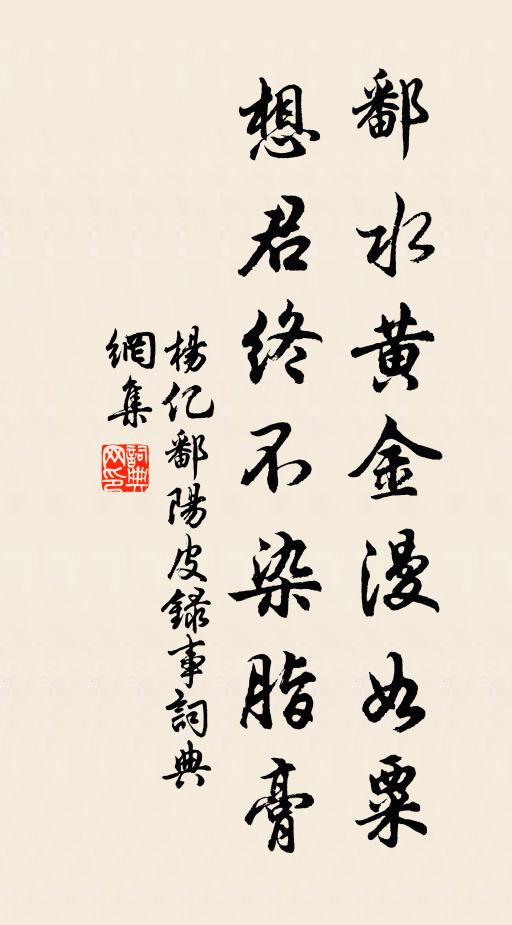 鄱水黄金漫如粟
想君終不染脂膏
楊億鄱陽皮錄事詞典
網集
詞典網印